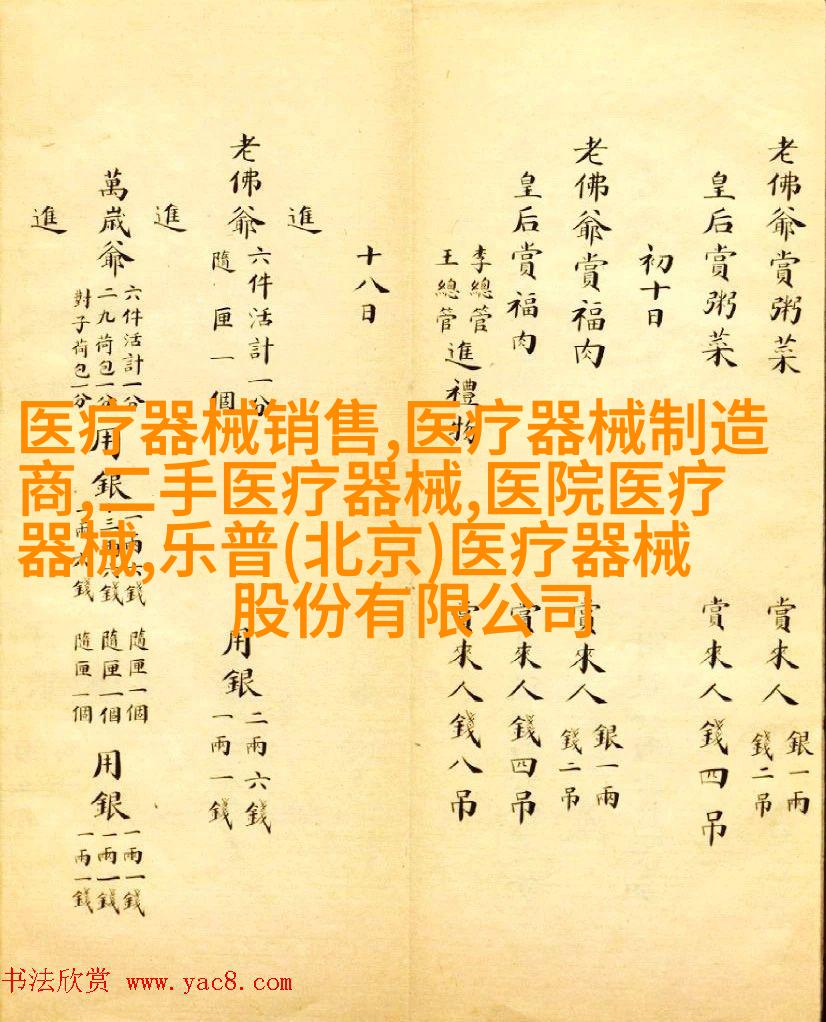 老佛爺賞粥菜 賞來人 銀一兩 錢二吊
皇后賞粥菜 賞來人錢四吊
初十日
老佛爺賞福肉 賞來人 銀一兩 錢二吊
皇后賞福肉 賞來人錢四吊
李總管 王總管 進禮物 賞來人錢八吊
十八日
進
老佛爺 六件活計一分 隨匣一個 用銀 二兩六錢 一兩一錢
進
萬歲爺 六件活計一分 二九荷包一分 對子荷包一分 用銀 隨匣一個 隨匣一個 隨匣一個 用銀 一兩一錢 一兩一錢 一兩一錢
進
医疗器械销售,医疗器械制造
商,二手医疗器械,医院医疗
器械,乐普(北京)医疗器械
股份有限公司
书法欣赏 www.yac8.com